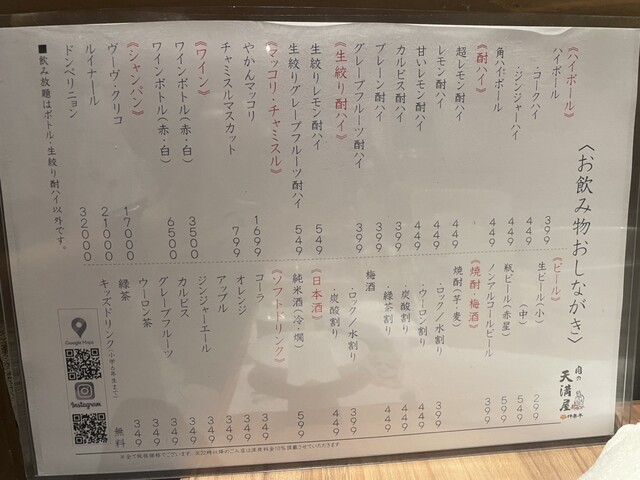 〈お飲み物おしながき〉
《ハイボール》
ハイボール 399
・コークハイ 449
・ジンジャーハイ 449
角ハイボール 449
《酎ハイ》
超レモン酎ハイ 449
レモン酎ハイ 449
甘いレモン酎ハイ 449
カルピス酎ハイ 399
プレーン酎ハイ 399
グレープフルーツ酎ハイ 399
《生絞り酎ハイ》
生絞りレモン酎ハイ 549
生絞りグレープフルーツ酎ハイ 549
《マッコリ・チャミスル》
やかんマッコリ 1699
チャミスルマスカット 799
《ワイン》
ワインボトル(赤・白) 3500
ワインボトル(赤・白) 6500
《シャンパン》
ヴーヴ・クリコ 17000
ルイナール 21000
ドンペリニョン 32000
■飲み放題はボトル・生絞り酎ハイ以外です。
《ビール》
生ビール(小) 299
(中) 549
瓶ビール(赤星) 599
ノンアルコールビール 399
《焼酎・梅酒》
焼酎(芋・麦)
・ロック/水割り 399
・ウーロン割り 449
・炭酸割り 449
・緑茶割り 449
梅酒
・ロック/水割り 399
・炭酸割り 449
《日本酒》
純米酒(冷・燗) 599
《ソフトドリンク》
コーラ 349
オレンジ 349
アップル 349
ジンジャーエール 349
カルピス 349
グレープフルーツ 349
ウーロン茶 349
緑茶 349
キッズドリンク(小学6年生まで) 無料
肉の
天満屋
Google Maps
Instagram